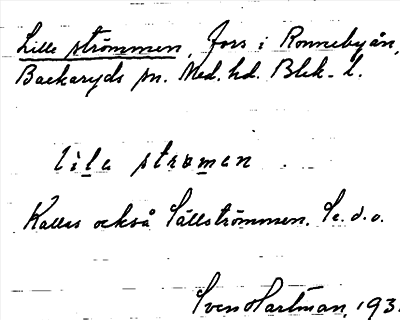 Lille strömmen, Fors i Ronnebyån,
Backaryds sn. Med. hd. Blek. l.
lila stroman
Kallas också Sällströmmen. Se. d. o.
Sven Hartman, 193